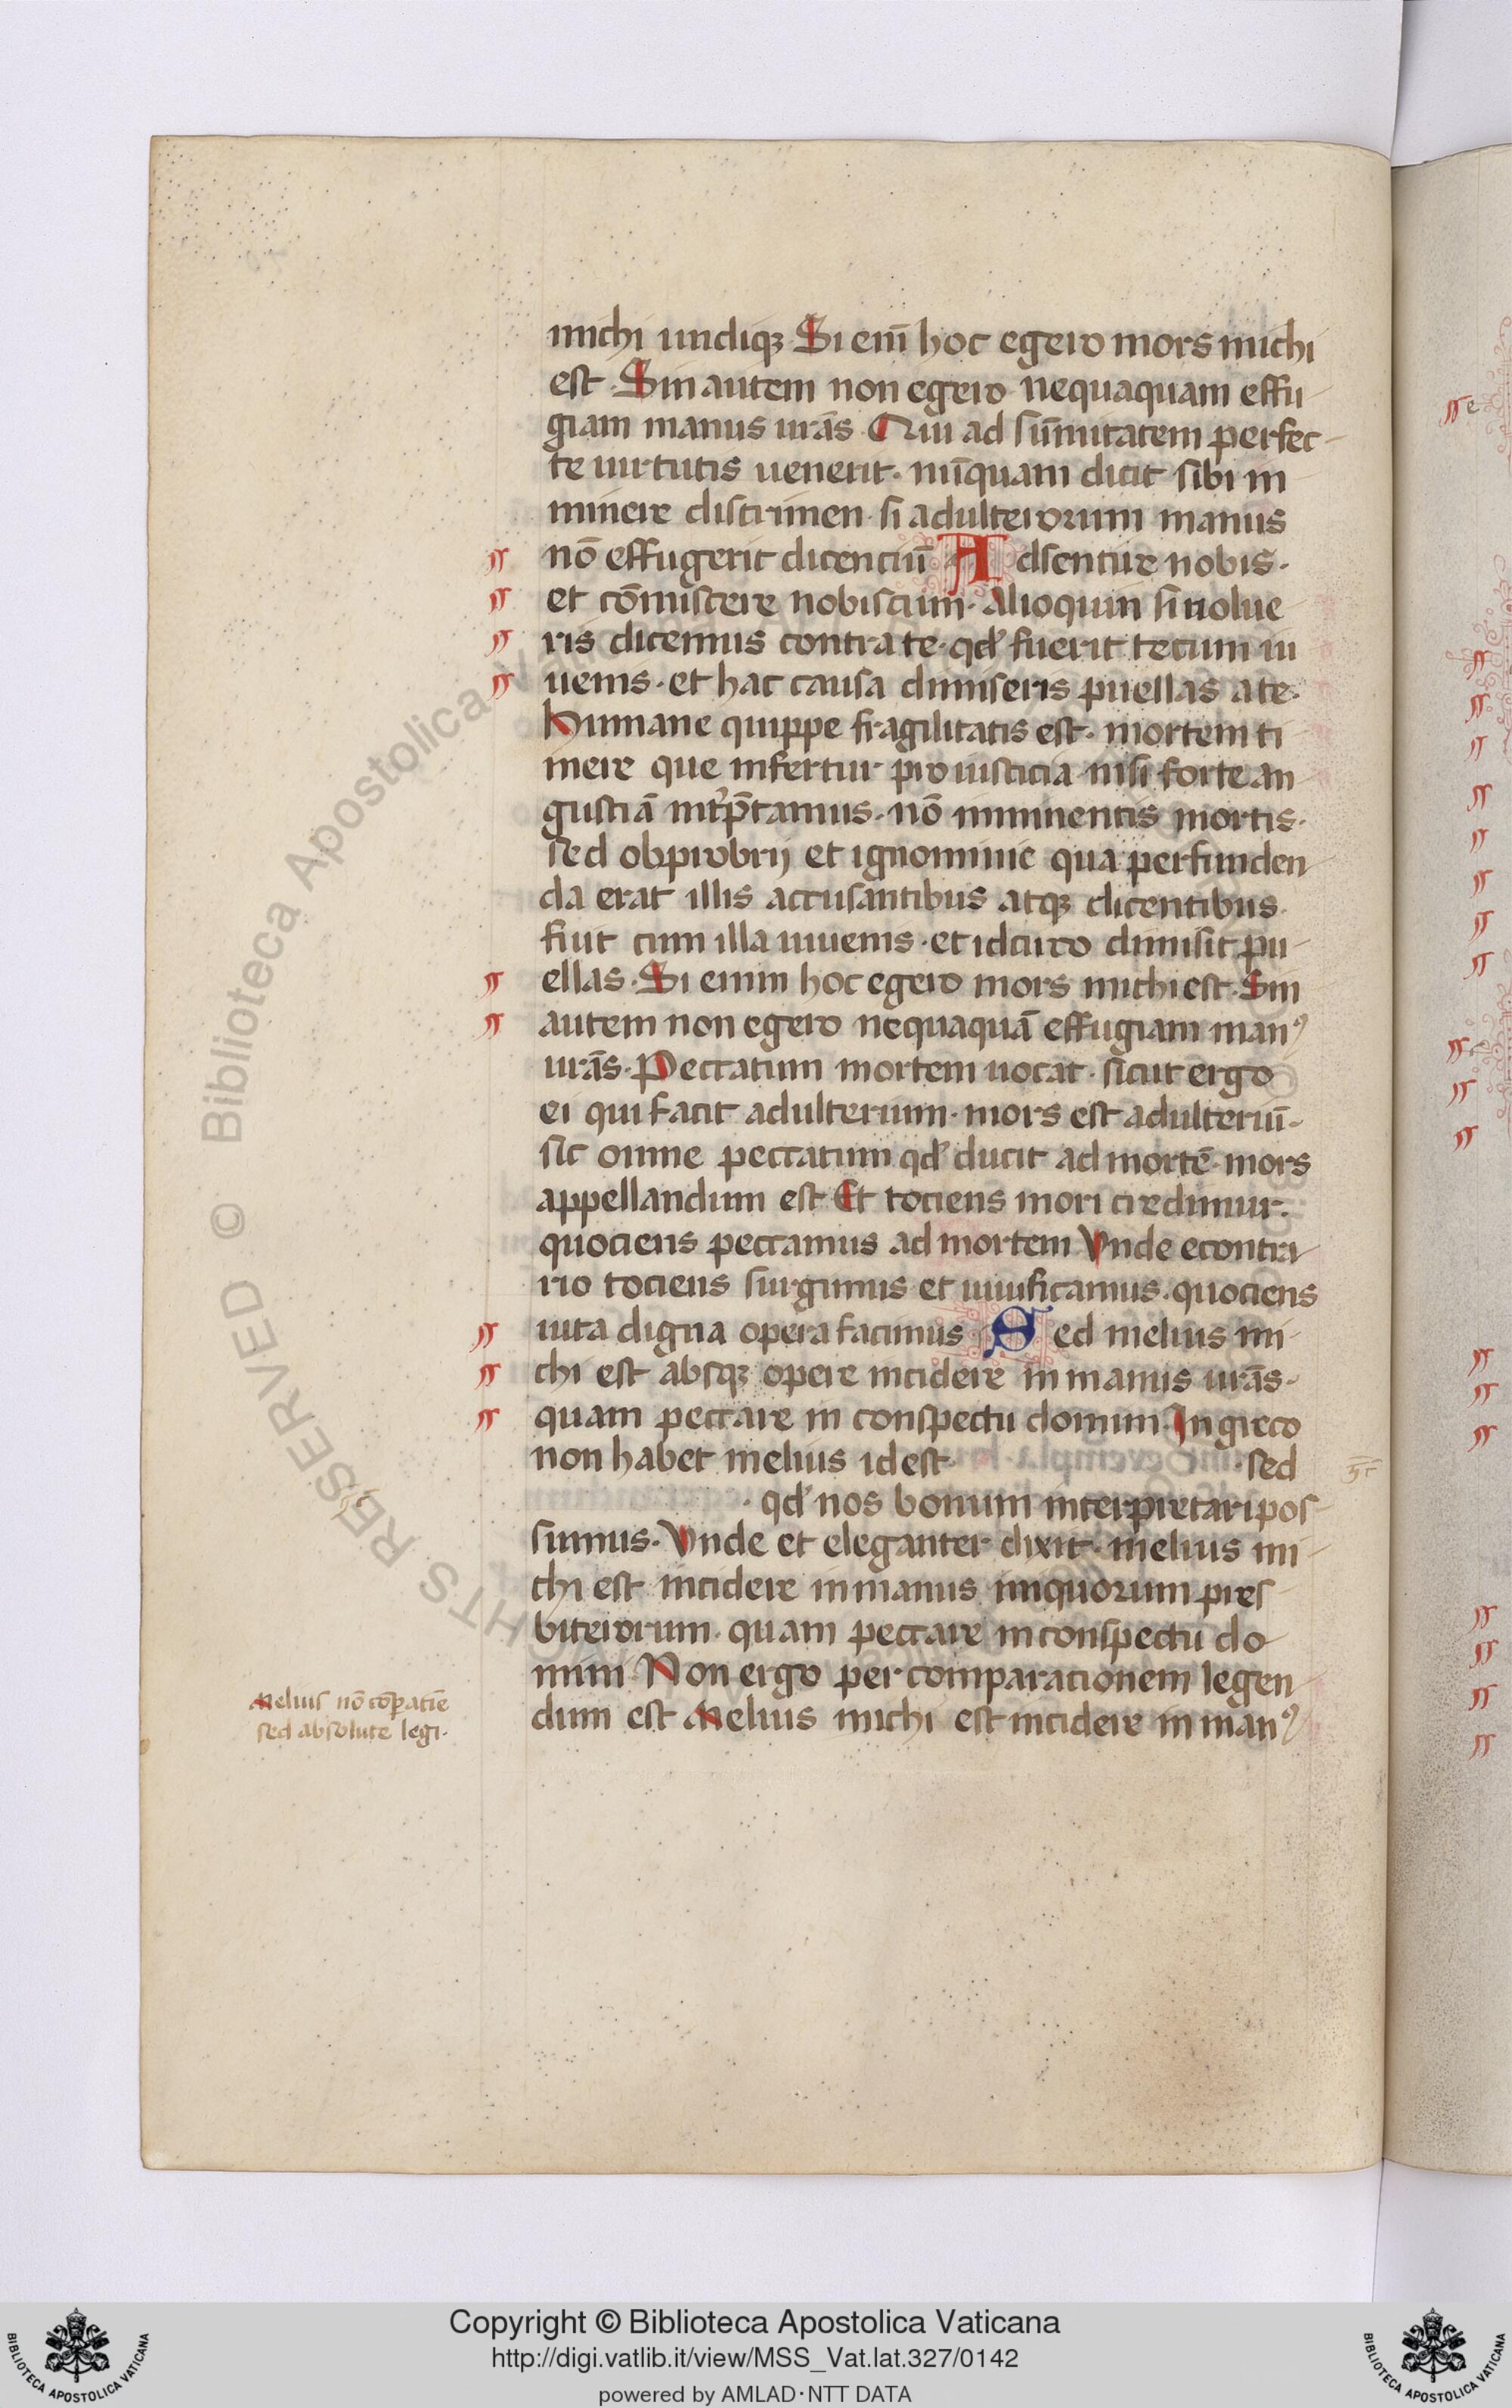 michi undiqꝫ Si enī hoc egero mors michi
est. Sin autem non egero nequaquam effu
giam manus urās. Qui ad sūmitatem perfec
te uirtutis uenerit. nūquam dicit sibi in
minere discrimen. si adulterorum manus
nō effugerit dicenciū Adsentire nobis.
et cōmiscere nobiscum. Alioquin si nolue
ris dicemus contra te. qđ fuerit tecum iu
uenis. et hac causa dimiseris puellas a te.
Humane quippe fragilitatis est. mortem ti
mere que infertur pro iusticia. nisi forte an
gustiā int̉p̄tamus. nō imminentis mortis.
sed obprobrij et ignominie qua perfunden
da erat illis accusantibus atqꝫ dicentibus.
fuit cum illa iuuenis. et idcirco dimisit pu
ellas. Si enim hoc egero mors michi est. Sin
autem non egero nequaquā effugiam manꝰ
urās. Peccatum mortem uocat. sicut ergo
ei qui facit adulterium. mors est adulteriū.
sic omne peccatum qđ ducit ad mortē. mors
appellandum est Et tociens mori credimur.
quociens peccamus ad mortem Vnde econtra
rio tociens surgimus et uiuificamus. quociens
uita digna opera facimus Sed melius mi
chi est absqꝫ opere incidere in manus urās.
quam peccare in conspectu domini. In greco
non habet melius id est . sed
. qđ nos bonum interpretari pos
sumus. Vnde et eleganter dixit. melius mi
chi est incidere in manus iniquorum pres
biterorum. quam peccare in conspectu do
mini Non ergo per comparationem legen
dum est Melius michi est incidere in manꝰ
Melius nō cōꝑatīe
sed absolute legi.
Biblioteca Apostolica Vaticana
Copyright © Biblioteca Apostolica Vaticana
http://digi.vatlib.it/view/MSS_Vat.lat.327/0142
powered by AMLAD·NTT DATA
BIBLIOTECA APOSTOLICA VATICANA
BIBLIOTECA APOSTOLICA VATICANA